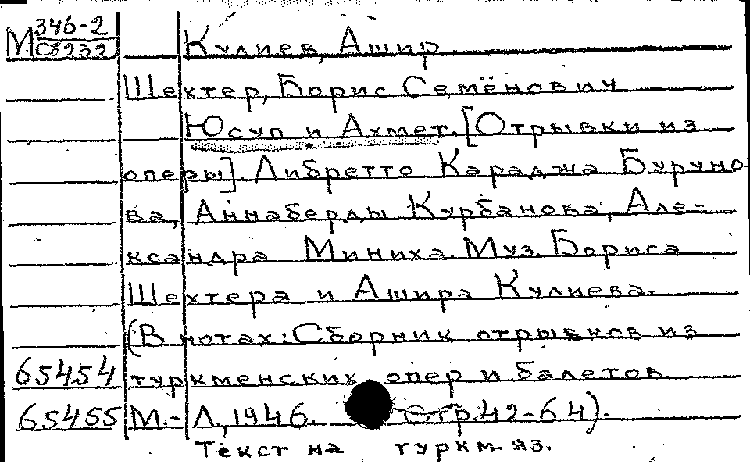 М 346-2
С8232
Кулиев, Ашир
Шехтер, Борис Семёнович
Юсуп и Ахмет. [Отрывки из
оперы]. Либретто Караджа Буруно-
ва, Аннаберды Курбанова, Але-
ксандра Миниха. Муз. Бориса
Шехтера и Ашира Кулиева.
(В нотах: Сборник отрывков из
65454 туркменских опер и балетов
65455 М.-Л., 1946. Стр. 42-64).
Текст на туркм. яз.